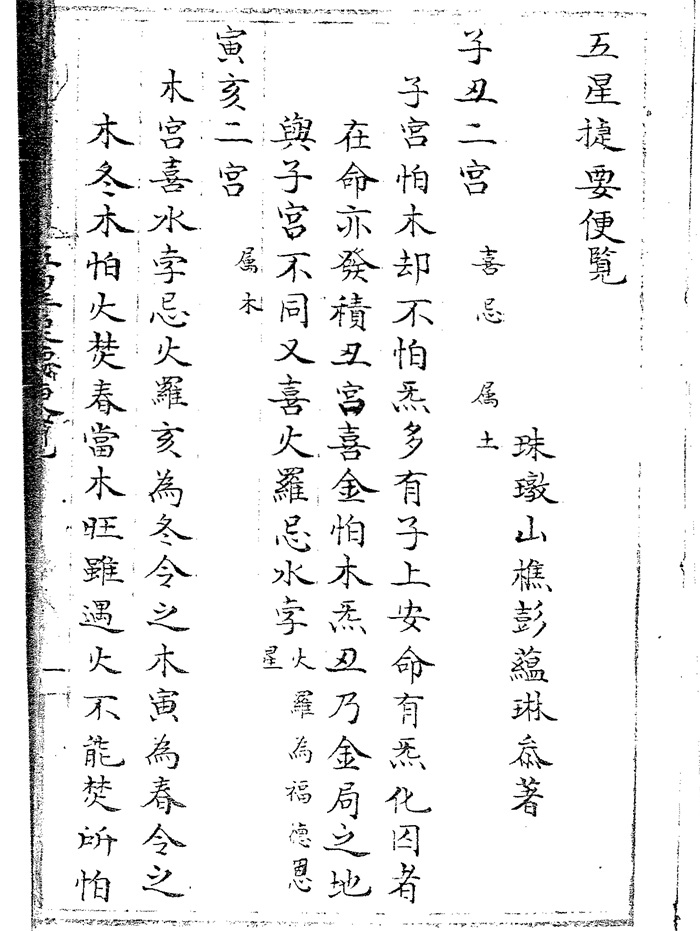 五星捷要便覽
珠璈山樵彭蘊琳叅著
子丑二宫 喜忌 属土
子宫怕木却不怕炁多有子上安命有炁化囚者
在命亦發積丑宫喜金怕木炁丑乃金局之地
與子宫不同又喜火羅忌水孛火羅為福德恩星
寅亥二宫 属木
木宫喜水孛忌火羅亥為冬令之木寅為春令之
木冬木怕火焚春當木旺雖遇火不能焚所怕
一